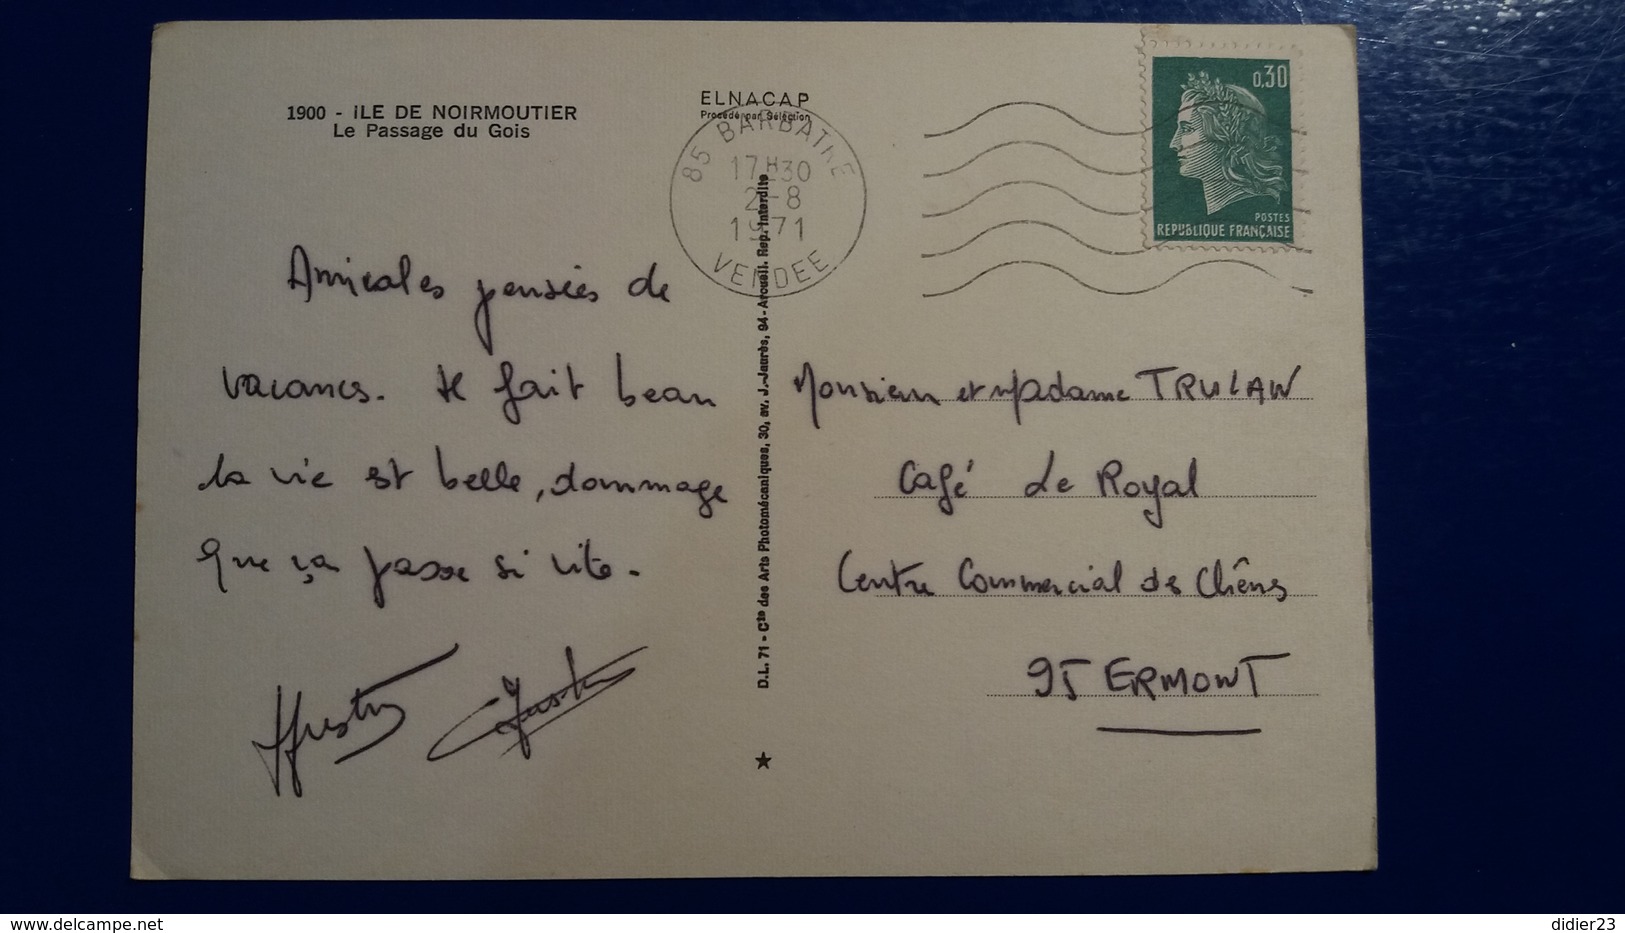 1900 - ILE DE NOIRMOUTIER
Le Passage du Gois
ELNACAP
Procédé par Sélection
85 BARBATRE
17H30
2-8
1971
VENDEE
0,30
POSTES
REPUBLIQUE FRANÇAISE
Amicales pensées de
vacances. Il fait beau
la vie est belle, dommage
que ça passe si vite.
D.L. 71 - Cte des Arts Photomécaniques, 30, av. J.-Jaurès, 94-Arcueil. Rep. Interdite
Monsieur et Madame TRULAW
Café Le Royal
Centre Commercial des Chênes
95 ERMONT
didier23